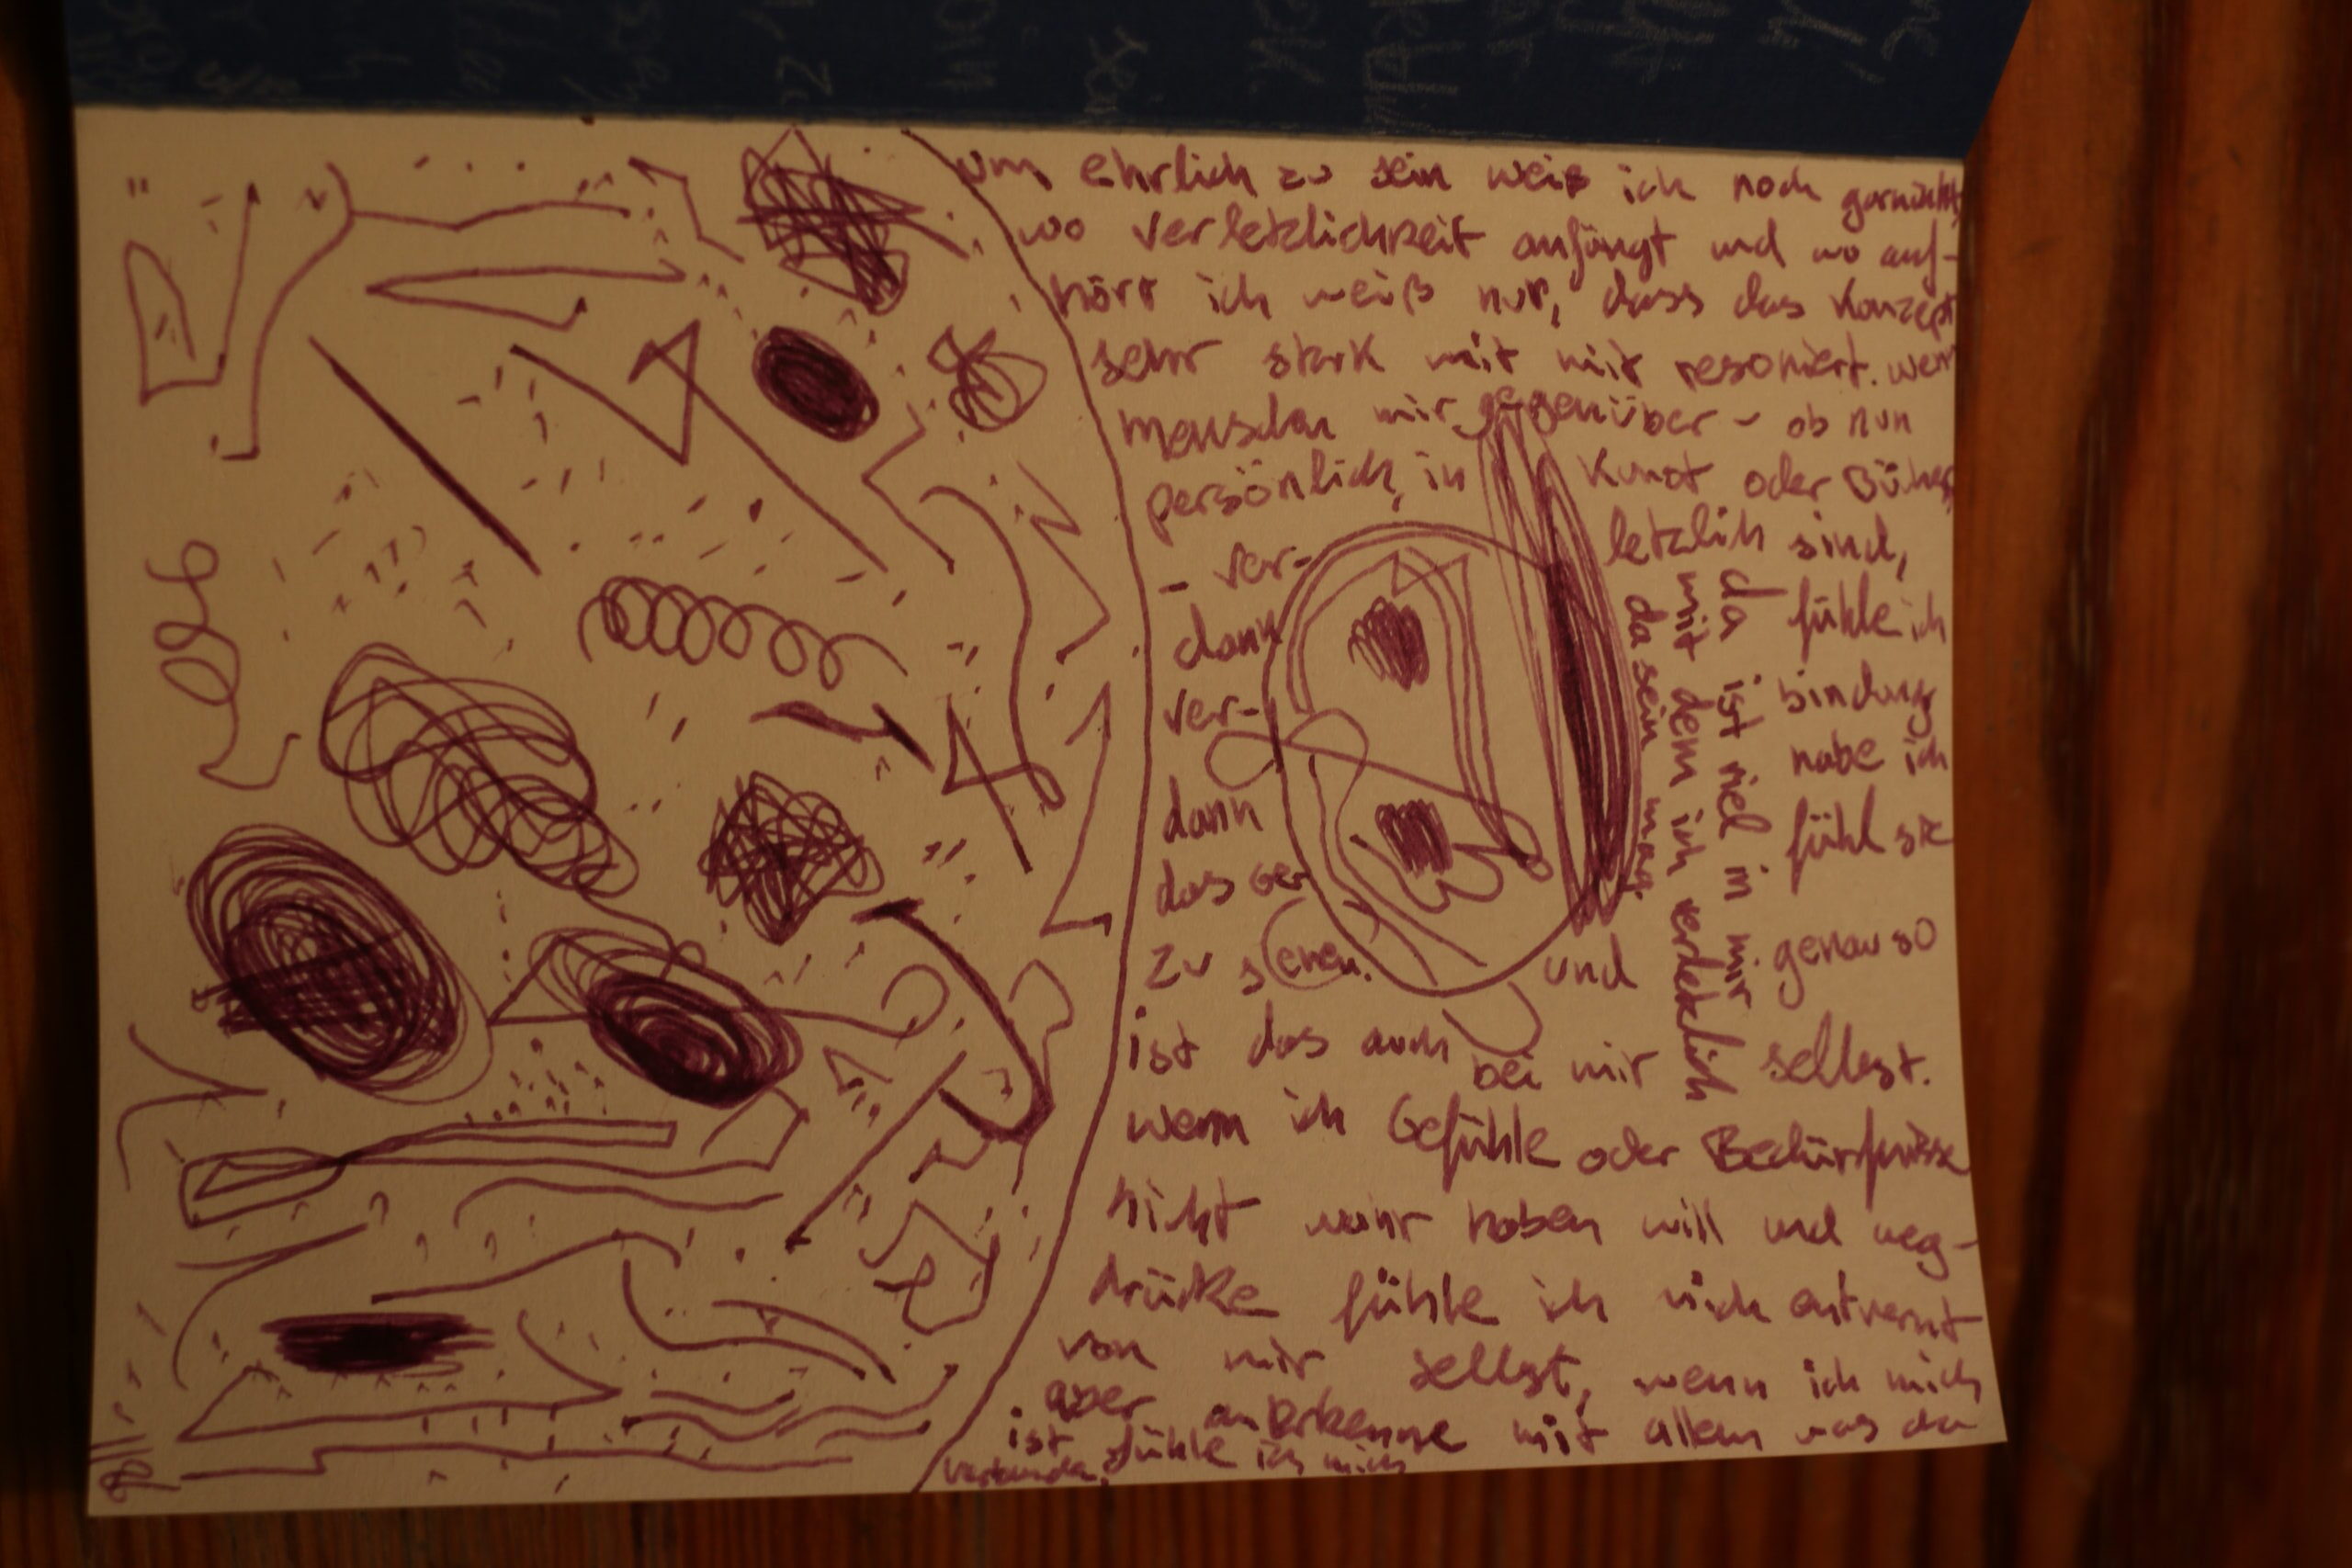 um ehrlich zu sein weiß ich noch garnicht,
wo verletzlichkeit anfängt und wo auf-
hört ich weiß nur, dass das Konzept
sehr stark mit mir resoniert. wenn
menschen mir gegenüber - ob nun
persönlich, in Kunst oder Bücher
- ver- letzlich sind,
dann fühle ich
ver- bindung
dann habe ich
das Ge- fühl sie
zu sehen. und genau so
ist das auch bei mir selbst.
wenn ich Gefühle oder Bedürfnisse
nicht wahr haben will und weg-
drücke fühle ich mich entvernt
von mir selbst, wenn ich mich
aber anerkenne mit allem was da
ist fühle ich mich
verbunden.
da ist viel in mir
mit dem ich verletzlich
da sein mag.